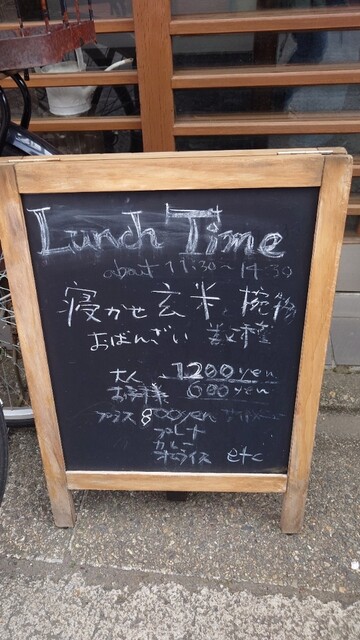 Lunch Time
about 11:30~14:30
寝かせ玄米、椀物
おばんざい 数種
大人 1200yen
お子様 600yen
プラス 800yen
プレート
カレー
オムライス etc